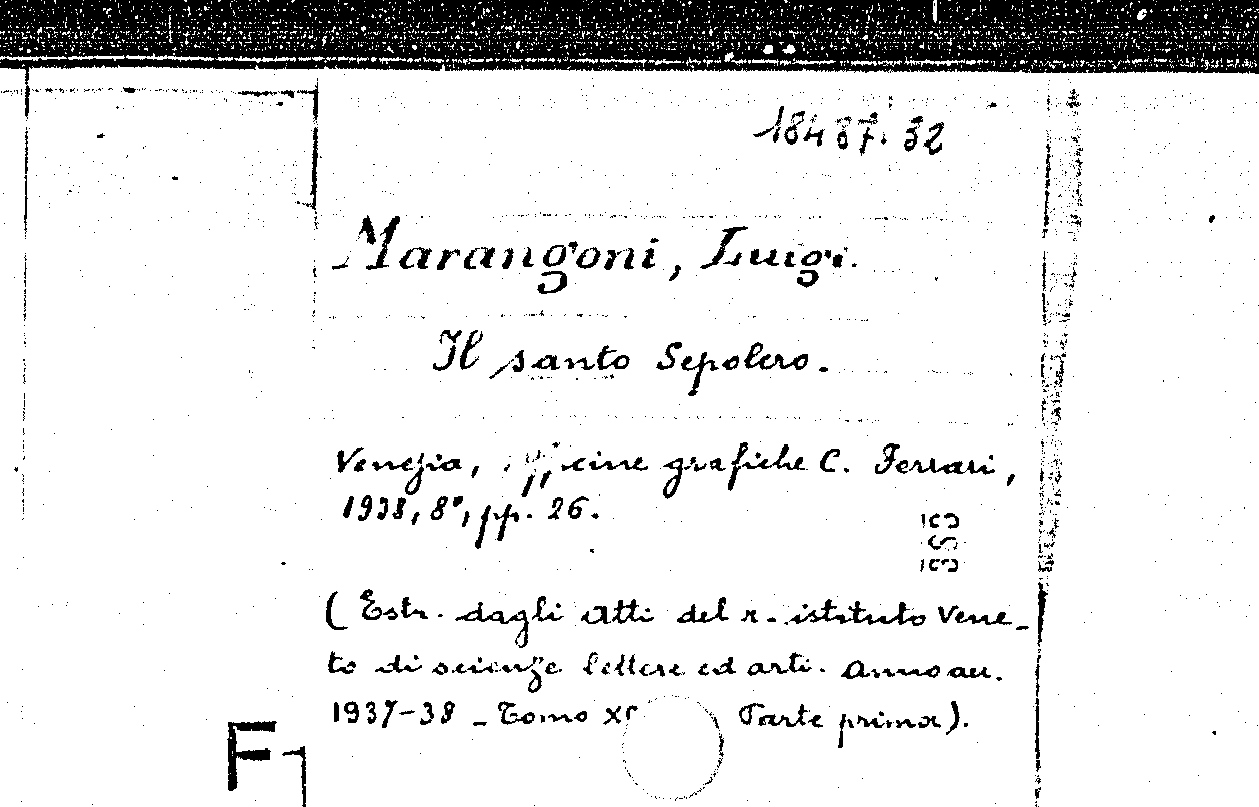 18487.32
Marangoni, Luigi.
Il santo Sepolcro.
Venezia, grafiche C. Ferrari,
1938, 8°, pp. 26.
(Estr. dagli Atti del r. istituto Vene-
to di scienze lettere ed arti. Anno acc.
1937-38 - Tomo Parte prima).
F